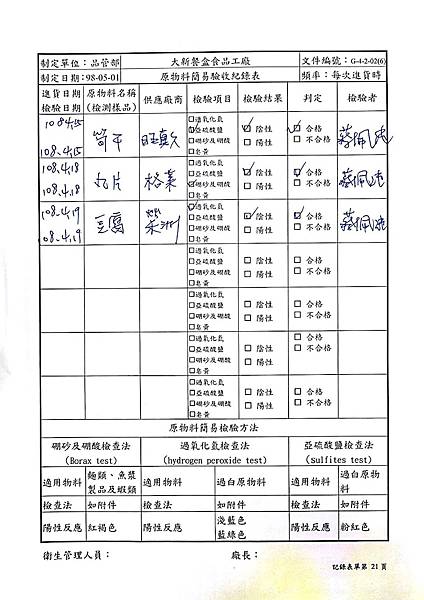 制定單位：品管部 大新餐盒食品工廠 文件編號：G-4-2-02(6)
制定日期:98-05-01 原物料簡易驗收紀錄表 頻率：每次進貨時
進貨日期 原物料名稱 供應廠商 檢驗項目 檢驗結果 判定 檢驗者
檢驗日期 (檢測樣品)
108.4.15 筍干 □過氧化氫 ☑陰性 ☑合格 蔡佩
☑亞硫酸鹽
108.4.15 □硼砂及硼酸 □陽性 □不合格
□皂黃
108.4.18 片 □過氧化氫 ☑陰性 ☑合格 蔡佩
☑亞硫酸鹽
108.4.18 □硼砂及硼酸 □陽性 □不合格
□皂黃
108.4.19 豆腐 榮洲 ☑過氧化氫 ☑陰性 ☑合格 蔡佩
□亞硫酸鹽
08.4.19 □硼砂及硼酸 □陽性 □不合格
□皂黃
□過氧化氫
□亞硫酸鹽 □陰性 □合格
□硼砂及硼酸 □陽性 □不合格
□皂黃
□過氧化氫
□亞硫酸鹽 □陰性 □合格
□硼砂及硼酸 □陽性 □不合格
□皂黃
□過氧化氫 □合格
□亞硫酸鹽 □陰性 □不合格
□硼砂及硼酸 □陽性
□皂黃
□過氧化氫
□亞硫酸鹽 □陰性 □合格
□硼砂及硼酸 □陽性 □不合格
□皂黃
原物料簡易檢驗方法
硼砂及硼酸檢查法 過氧化氫檢查法 亞硫酸鹽檢查法
(Borax test) (hydrogen peroxide test) (sulfites test)
適用物料 麵類、魚漿製品及蝦類 適用物料 過白原物料 適用物料 過白原物料
檢查法 如附件 檢查法 如附件 檢查法 如附件
陽性反應 紅褐色 陽性反應 淺藍色 陽性反應 粉紅色
藍綠色
衛生管理人員： 廠長：
記錄表單第 21 頁